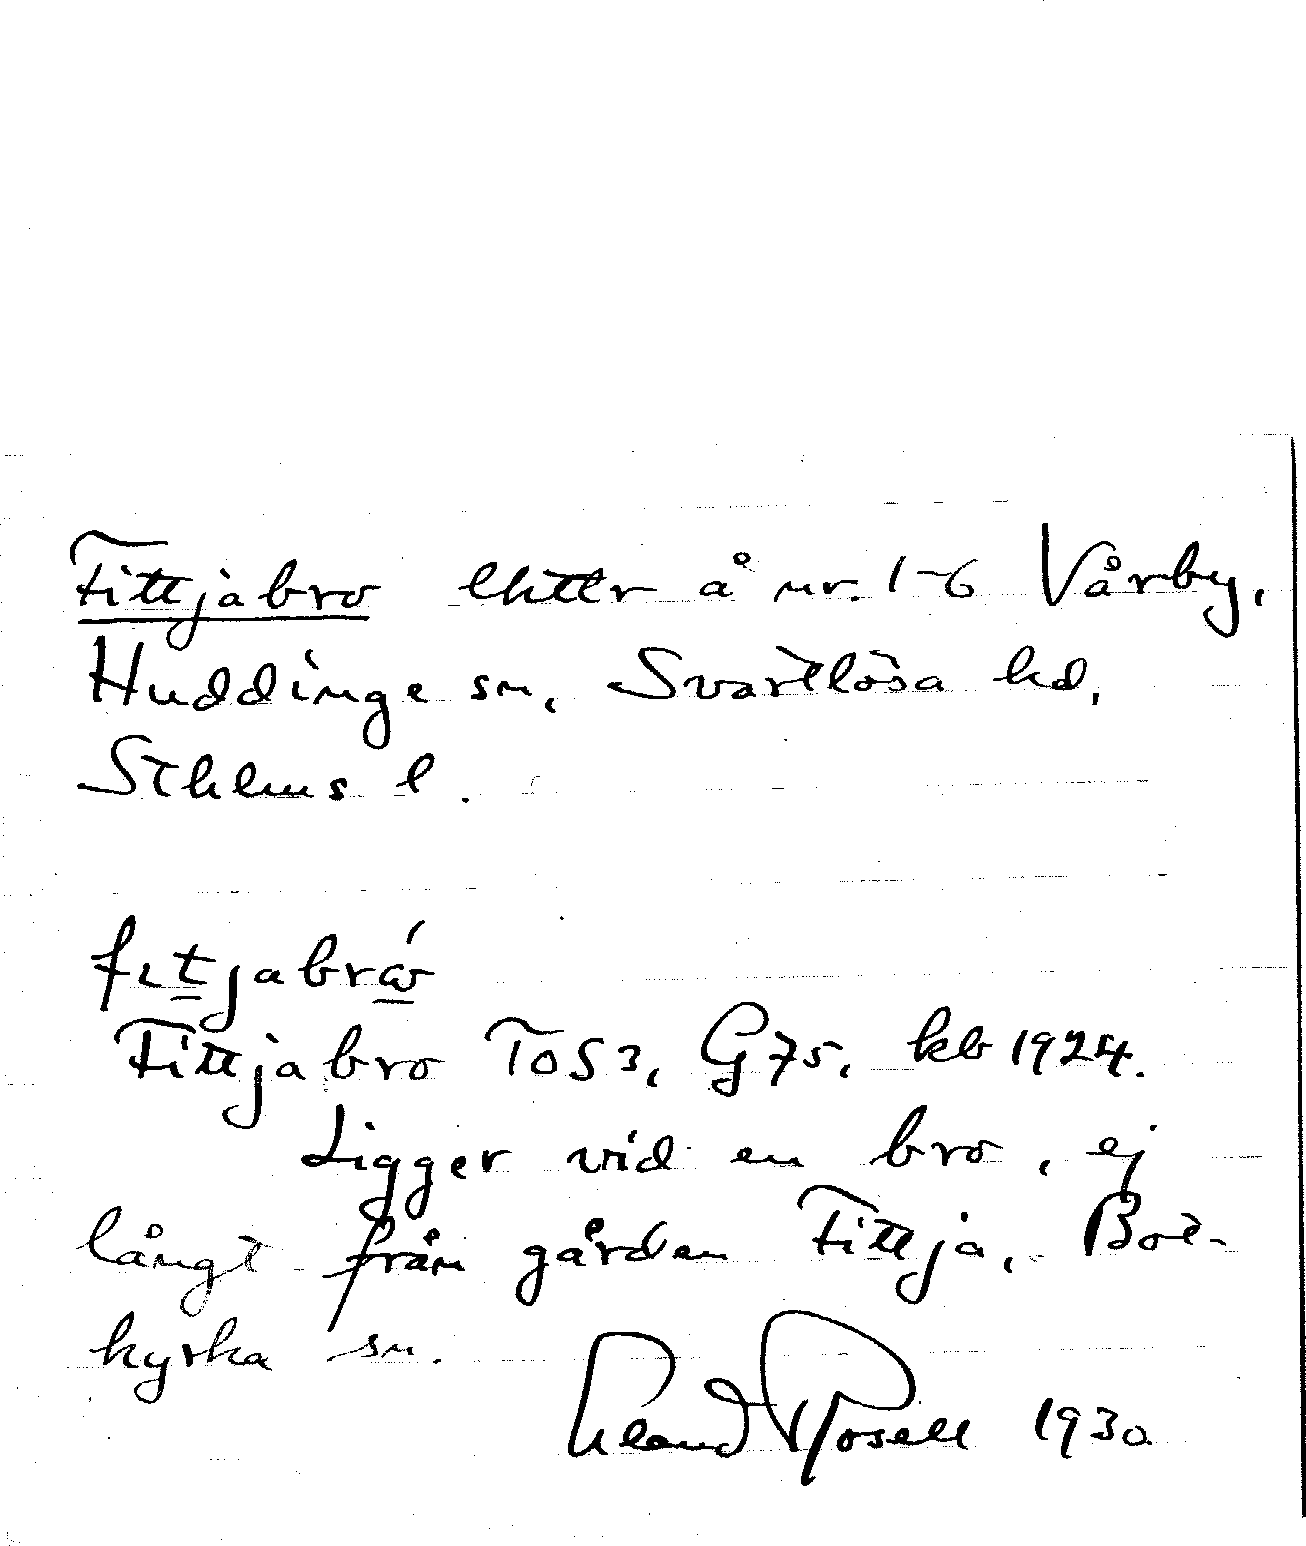 Fittjabro lhttr å nr. 1-6 Vårby,
Huddinge sn, Svartlösa hd,
Sthlms l.
fɩtjabrώ
Fittjabro TOS3, G75, kb 1924.
Ligger vid en bro, ej
långt från gården Fittja, Bot-
kyrka sn.
Rosell 1930